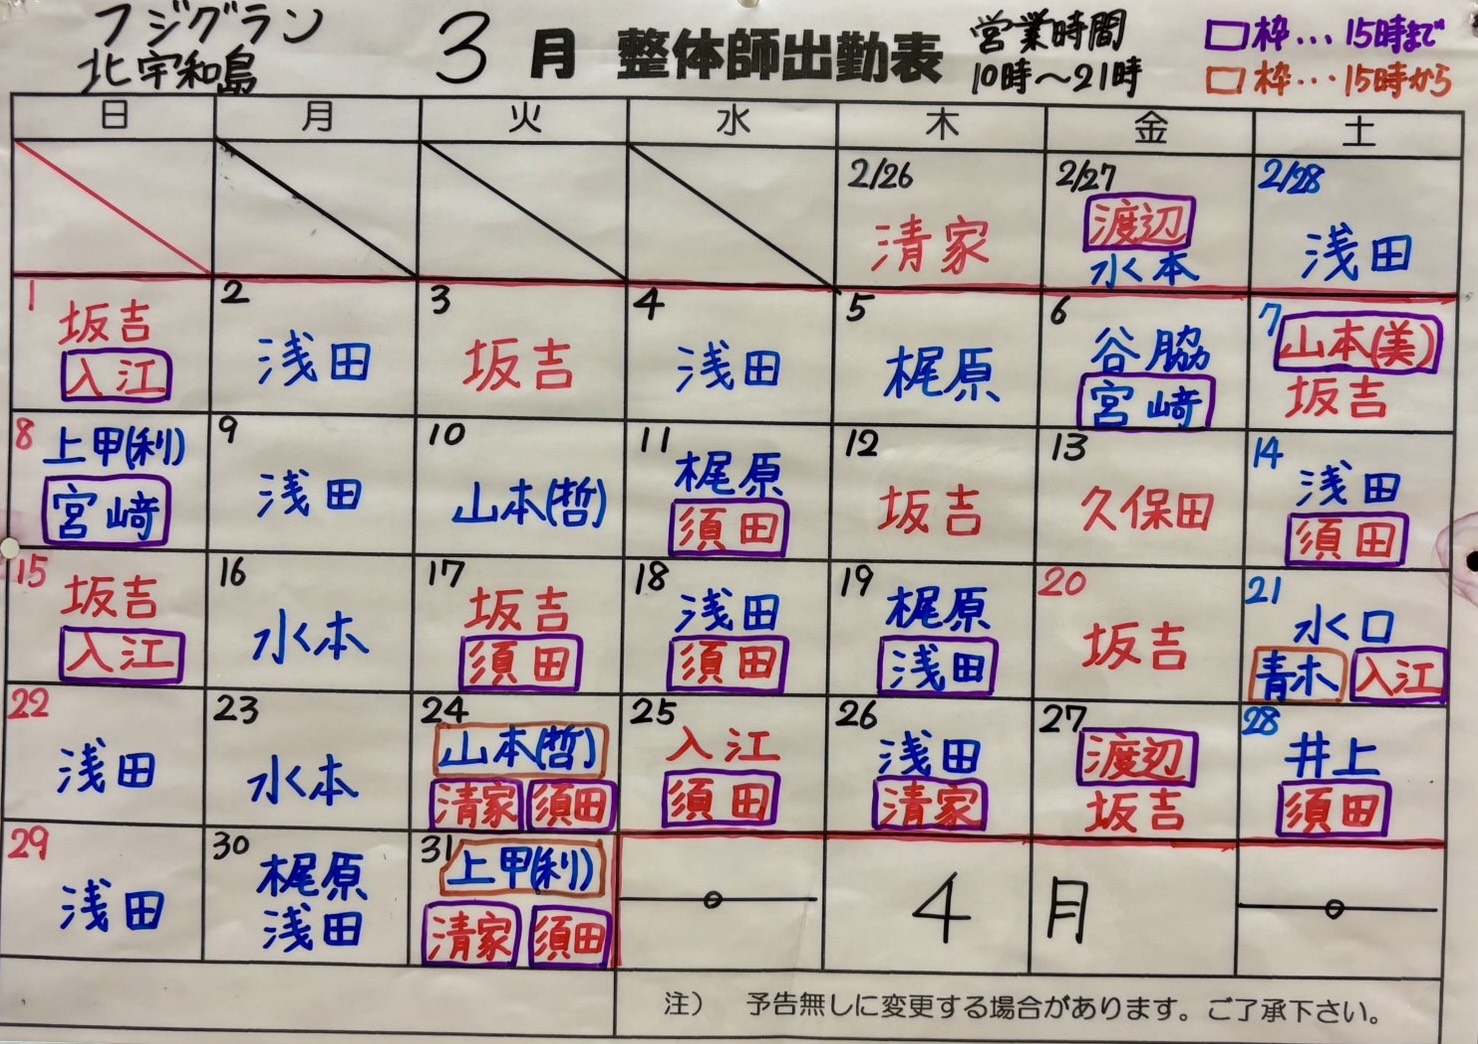 フジグラン
北宇和島
3月 整体師出勤表
営業時間
10時～21時
□枠…15時まで
□枠…15時から
日 月 火 水 木 金 土
2/26 2/27 2/28
清家
渡辺
水本
浅田
1 2 3 4 5 6 7
坂吉
入江
浅田
坂吉
浅田
梶原
谷脇
宮﨑
山本(美)
坂吉
8 9 10 11 12 13 14
上甲(利)
宮﨑
浅田
山本(哲)
梶原
須田
坂吉
久保田
浅田
須田
15 16 17 18 19 20 21
坂吉
入江
水本
坂吉
須田
浅田
須田
梶原
浅田
坂吉
水口
青木 入江
22 23 24 25 26 27 28
浅田
水本
山本(哲)
清家 須田
入江
須田
浅田
清家
渡辺
坂吉
井上
須田
29 30 31
浅田
梶原
浅田
上甲(利)
清家 須田
4月
注） 予告無しに変更する場合があります。ご了承下さい。